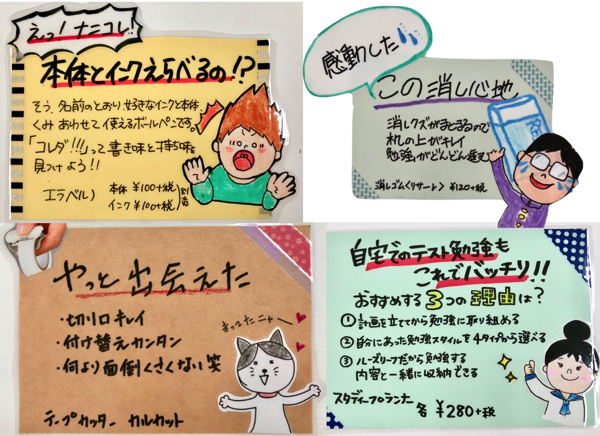 えっ!ナニコレ!!
本体とインクえらべるの!?
そう、名前のとおり、好きなインクと本体、
くみあわせて使えるボールペンです。
「コレダ!!!」って書き味と持ち味
見つけよう!!
エラベル)
本体 ¥100+税
インク ¥100+税
別売
感動した
この消し心地
消しクズがまとまるので
机の上がキレイ
勉強がどんどん進む
消しゴムくリサーレ> ¥120+税
やっと出会えた
・切り口キレイ
・付け替えカンタン
・何より面倒くさくない笑
まってたニャ〜
テープカッター カルカット
自宅でのテスト勉強も
これでバッチリ!!
おすすめする3つの理由は?
①計画を立ててから勉強に取り組める
②自分にあった勉強スタイルを4タイプから選べる
③ルーズリーフだから勉強する
内容と一緒に収納できる
スタディープランナー
各 ¥280+税